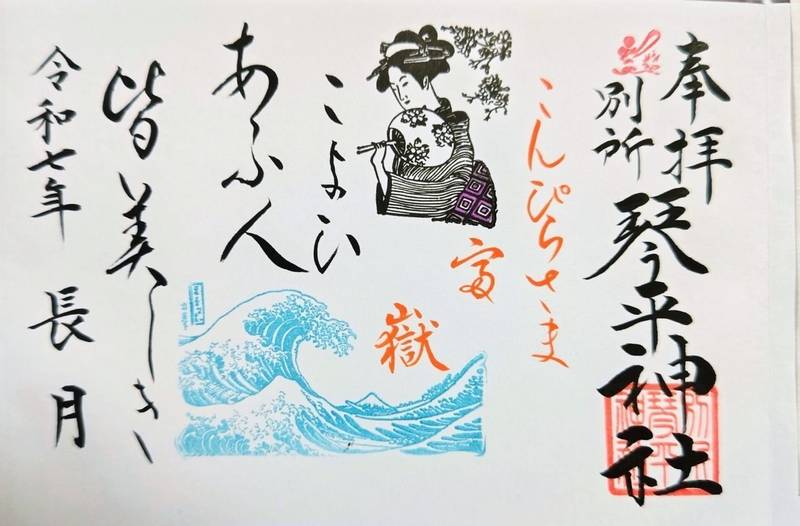 奉拝
別所
琴平神社
こんぴらさま
富嶽
こよひ
あふ人
皆美しき
令和七年 長月